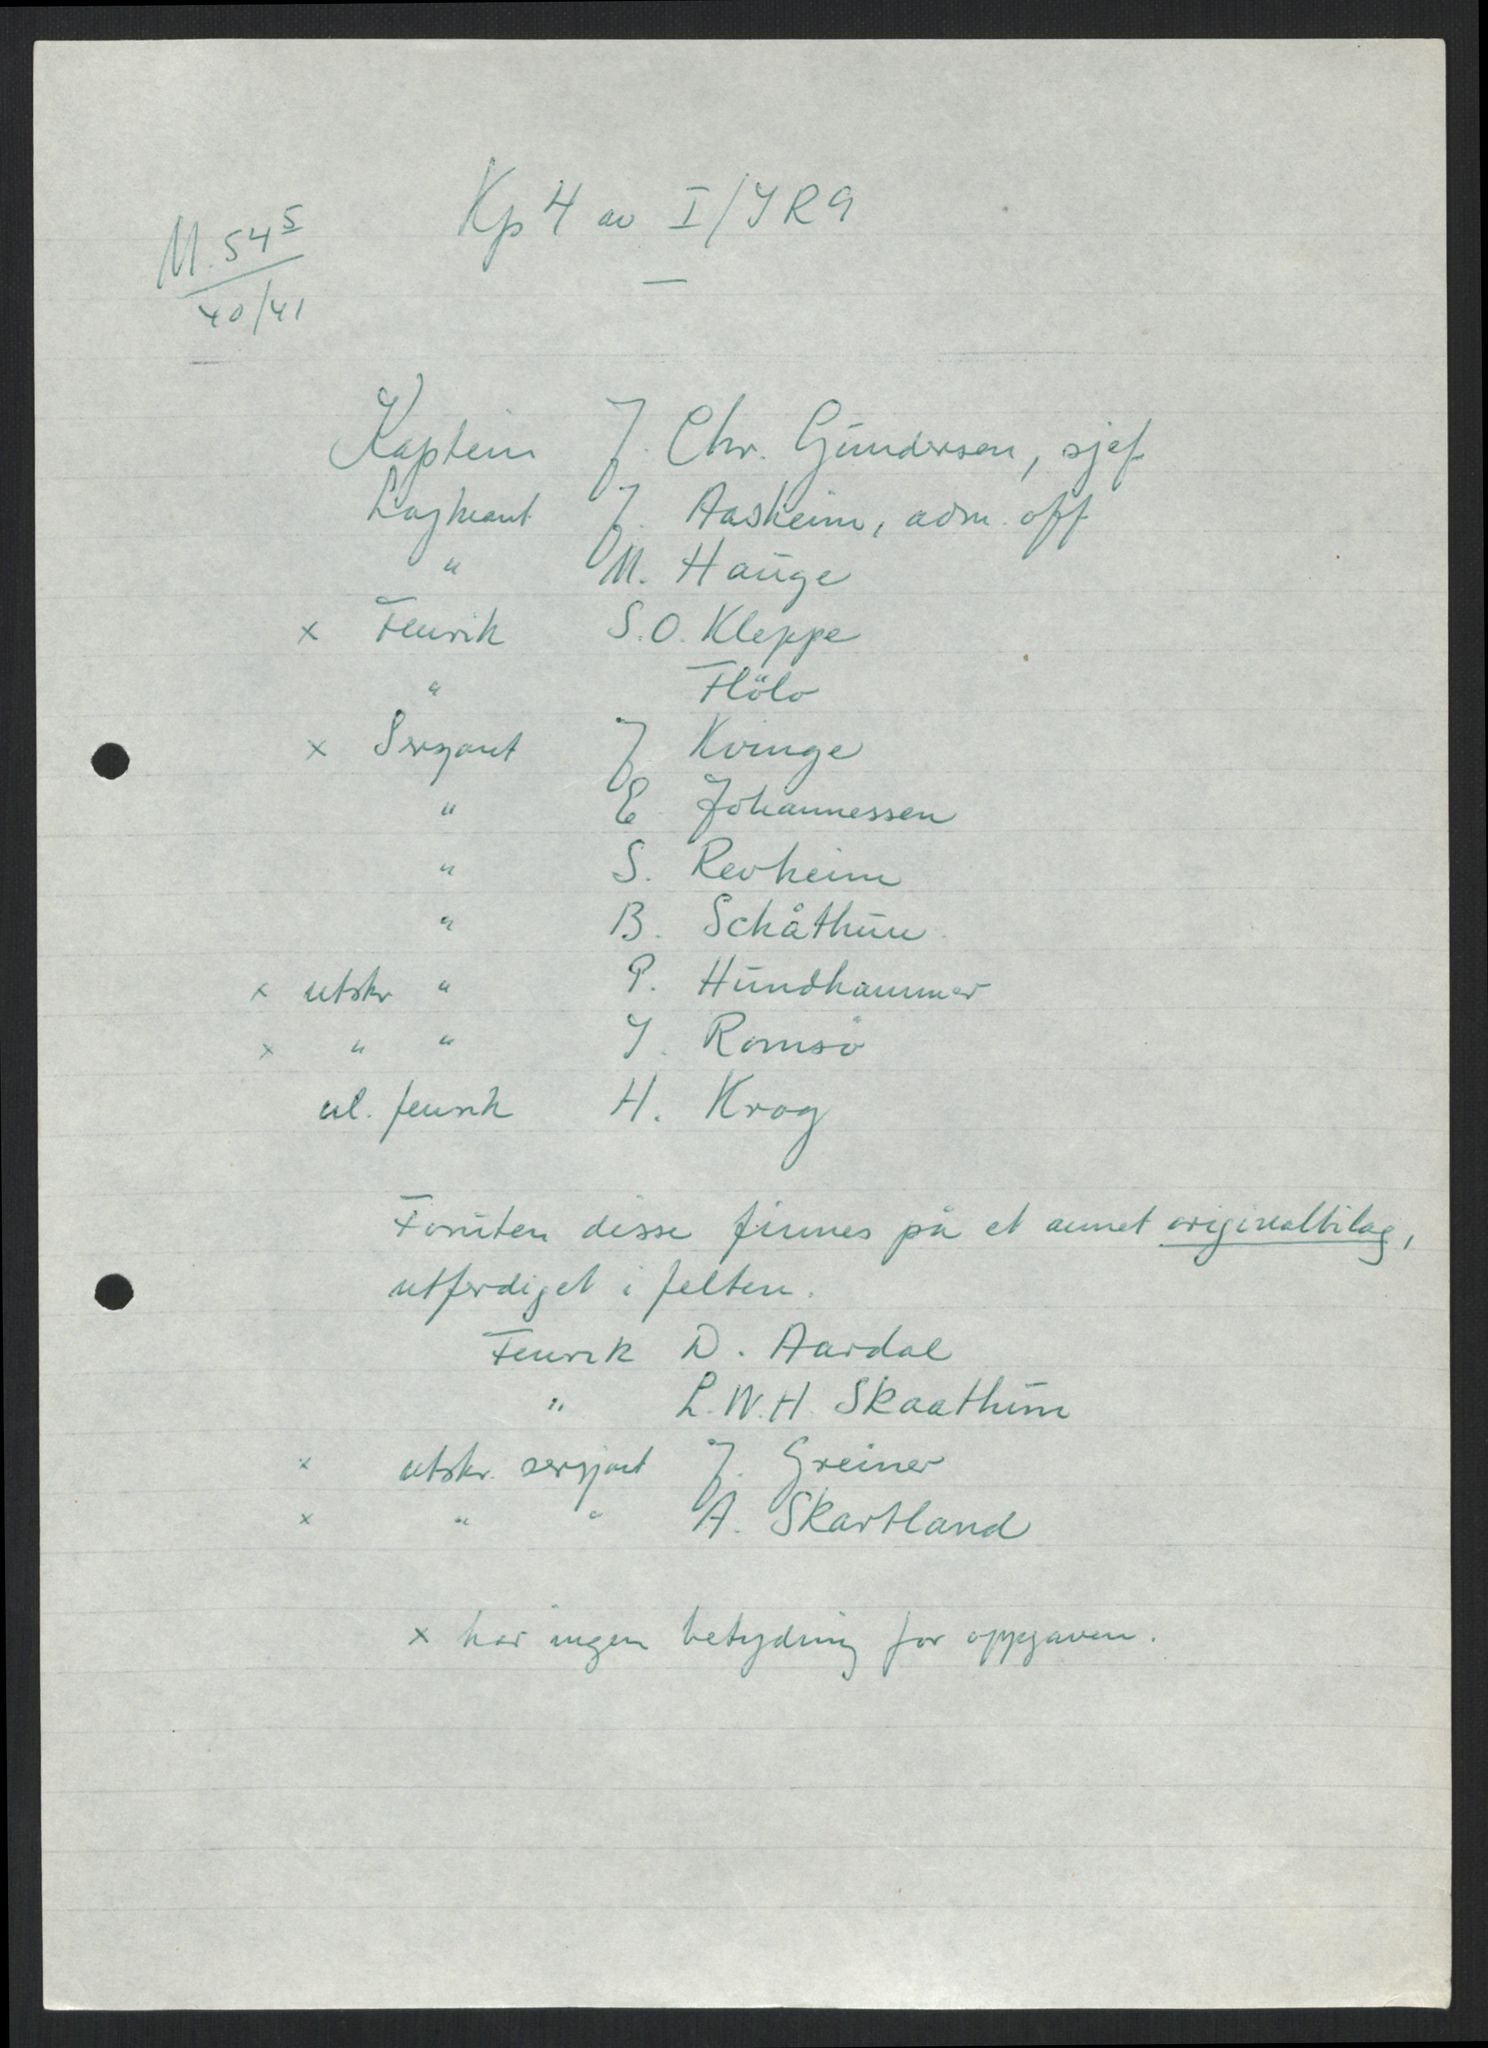 M. 54 5
40/41
Kp 4 av I/IR 9
Kaptein J. Chr. Gundersen, sjef
Løytnant J. Aasheim, adm. off
" M. Hauge
x Fenrik S. O. Kleppe
" Flölo
x Sersjant J Kvinge
" E Johannessen
" S. Revheim
" B. Schåthun
x utskr " P. Hundhammer
x " " I. Romsö
ul. fenrik H. Krog
Foruten disse finnes på et annet originalbilag,
utferdiget i felten.
Fenrik D. Aardal
" L. W. H. Skaathun
x utskr. sersjant J. Greiner
x " " A. Skartland
x har ingen betydning for oppgaven.